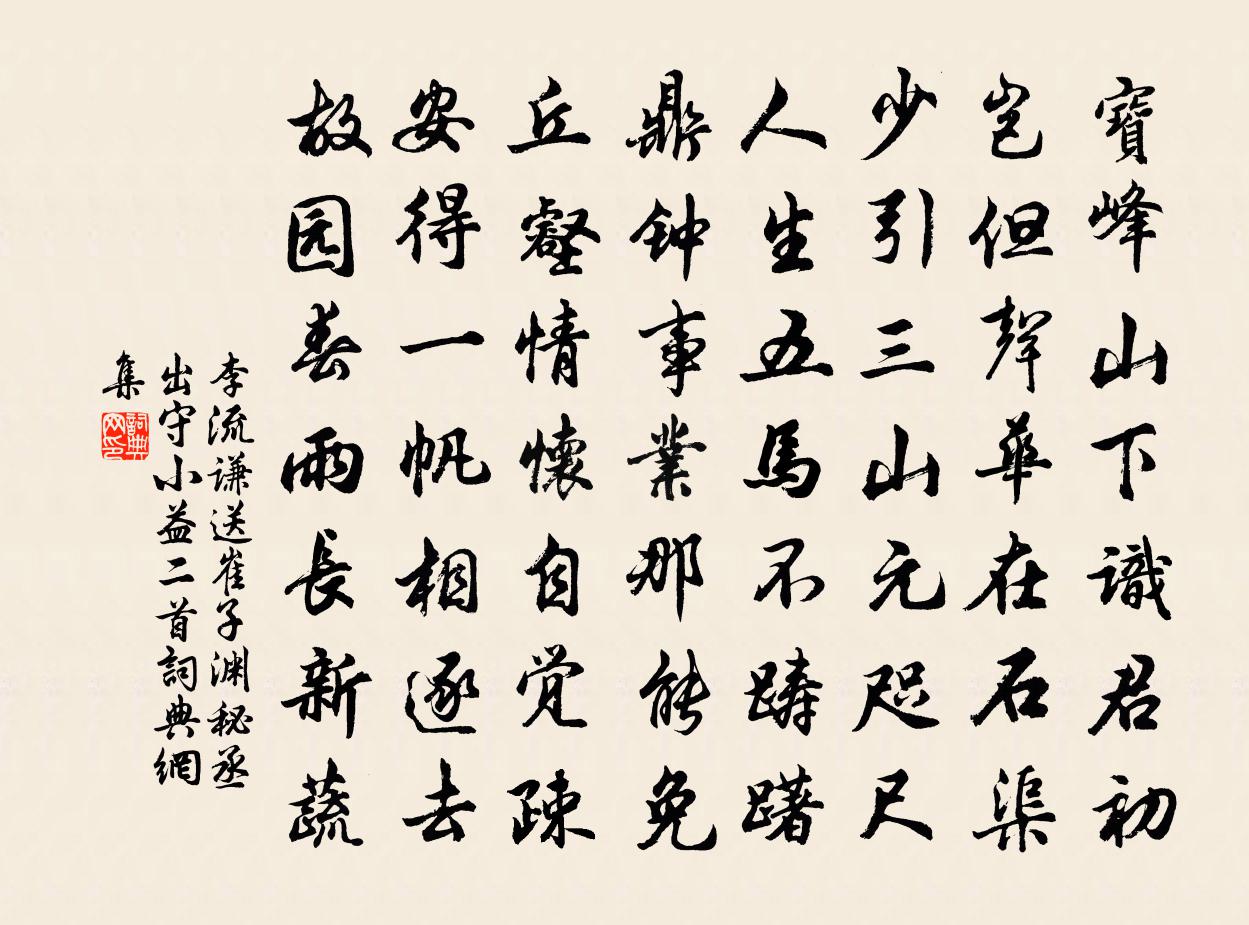 寶峰山下識君初
豈但聲華在石渠
少引三山元咫尺
人生五馬不躊躇
鼎钟事業那能免
丘壑情懷自觉疎
安得一帆相逐去
故园春雨長新蔬
李流谦送崔子渊秘丞
出守小益二首詞典網
集
詞典
网印